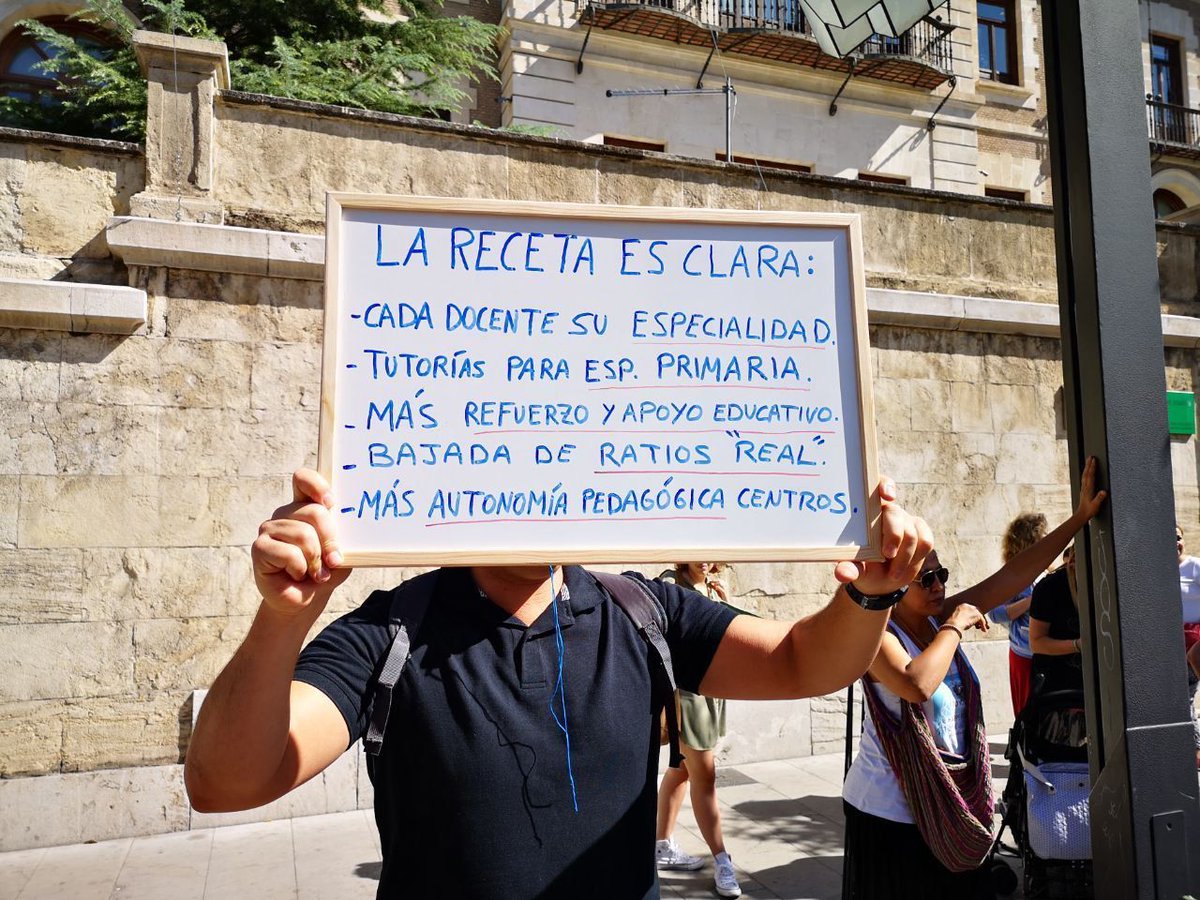 LA RECETA ES CLARA:
-CADA DOCENTE SU ESPECIALIDAD.
- TUTORÍAS PARA ESP. PRIMARIA.
- MÁS REFUERZO Y APOYO EDUCATIVO.
- BAJADA DE RATIOS "REAL".
-MÁS AUTONOMÍA PEDAGÓGICA CENTROS.